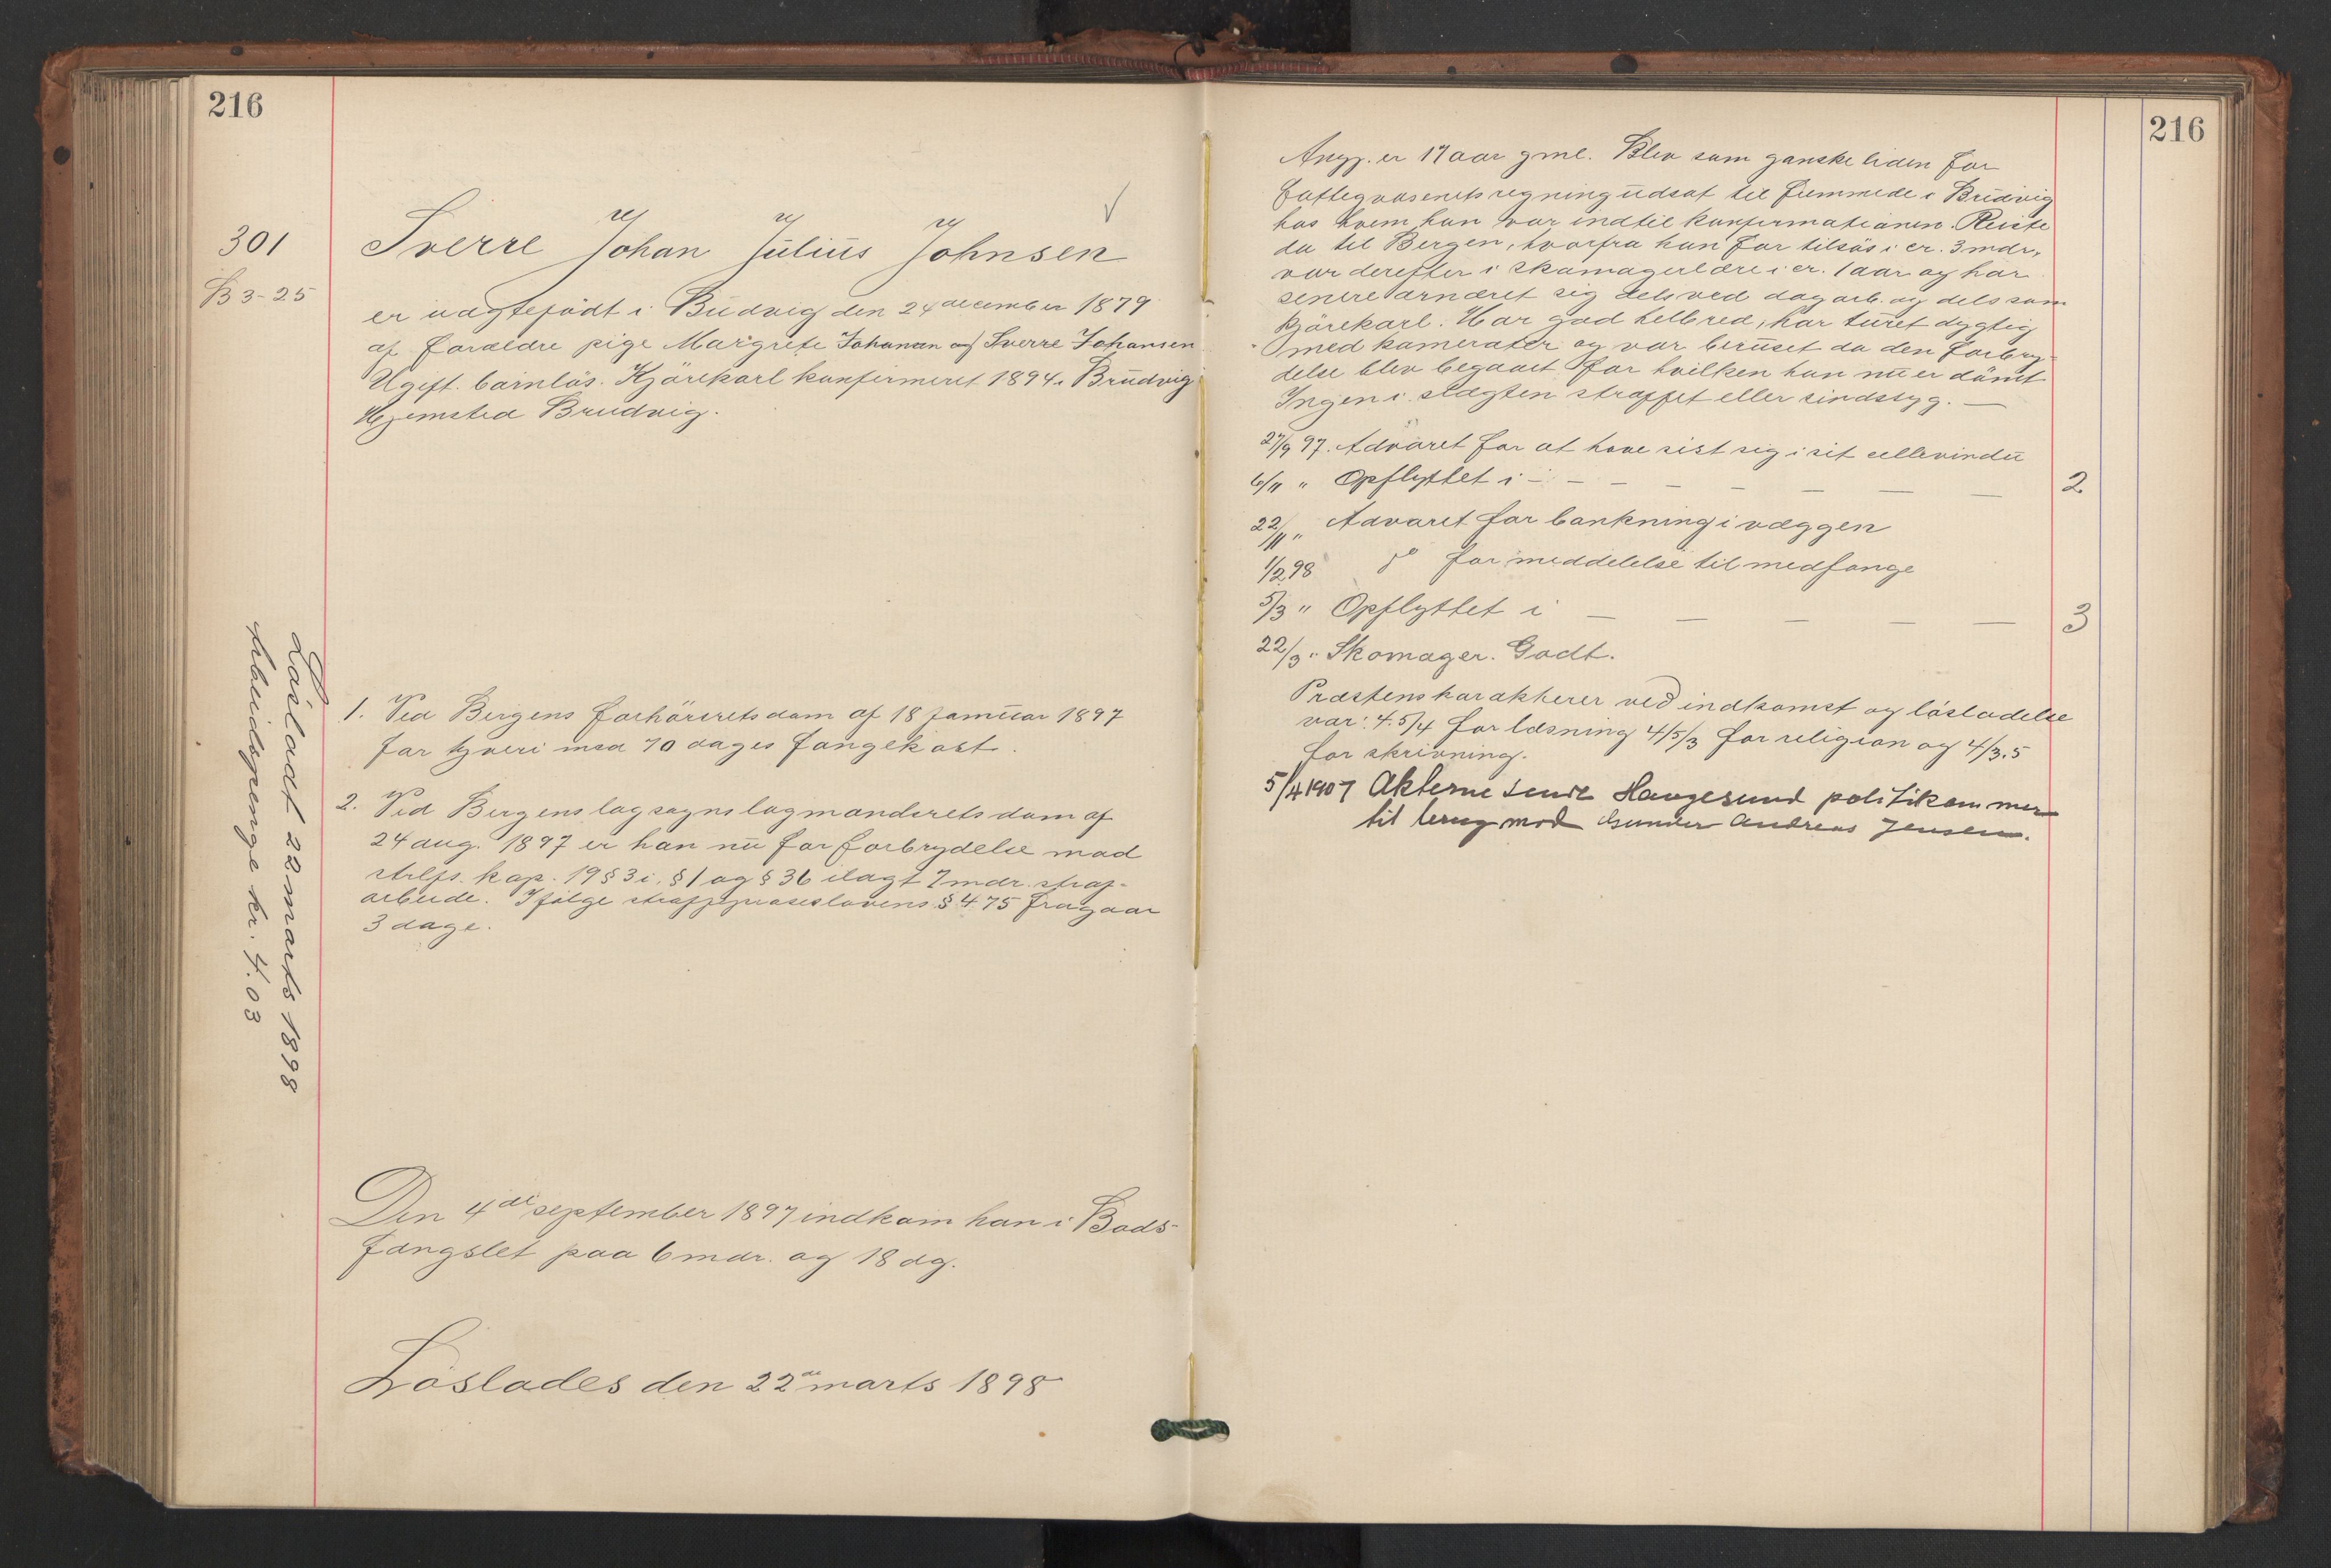 216
301
B 3-25
Sverre Johan Julius Johnsen
er uægtefødt i Budvig den 24 december 1879
af forældre pige Margrete Johansen og Sverre Johansen
Ugift. barnløs. Kjørekarl konfirmeret 1894 i Brudvig
Hjemsted Brudvig.
Løsladt 22 marts 1898
Arbeidspenge kr. 4.03
1. Ved Bergens forhørsretsdom af 18 januar 1897
for tyveri med 10 dages fangekost.
2. Ved Bergens lagsogns lagmandsrets dom af
24 aug. 1897 er han nu for forbrydelse mod
strfl. kap. 19 § 3 i. § 1 og § 36 ilagt 7 mdr. straf-
arbeide. Ifølge straffeproseslovens § 475 fragaar
3 dage.
Den 4de september 1897 indkom han i Bods-
fængslet paa 6 mdr. og 18 dg.
Løslades den 22de marts 1898
216
Angj. er 17 aar gml. Blev som ganske liden for
fattegvæsenets regning udsat til fremmede i Brudvig
hos hvem han var indtil konfirmationen. Reiste
da til Bergen, hvorfra han for tilsøs i cr. 3 mdr,
var derefter i skomagerlære i cr. 1 aar og har
senere ernæret sig dels ved dagarb. og dels som
kjørekarl. Har god helbred, har turet dygtig
med kamerater og var beruset da den forbry-
delse blev begaaet for hvilken han nu er dømt
Ingen i slægten straffet eller sindssyg. —
27/9 97. Advaret for at have vist sig i sit cellevindu
6/11 " Opflyttet i — — — — — — 2
22/11 " Advaret for bankning i væggen
1/2 98 do for meddelelse til medfange
5/3 " Opflyttet i — — — — — 3
22/3 " Skomager. Godt.
Præstens karakterer ved indkomst og løsladelse
var: 4.5/4 for læsning 4/5/3 for religion og 4/3.5
for skrivning.
5/4 1907 Akterne sendt Haugesund politikammer
til brug mod Gunder Andreas Jensen.